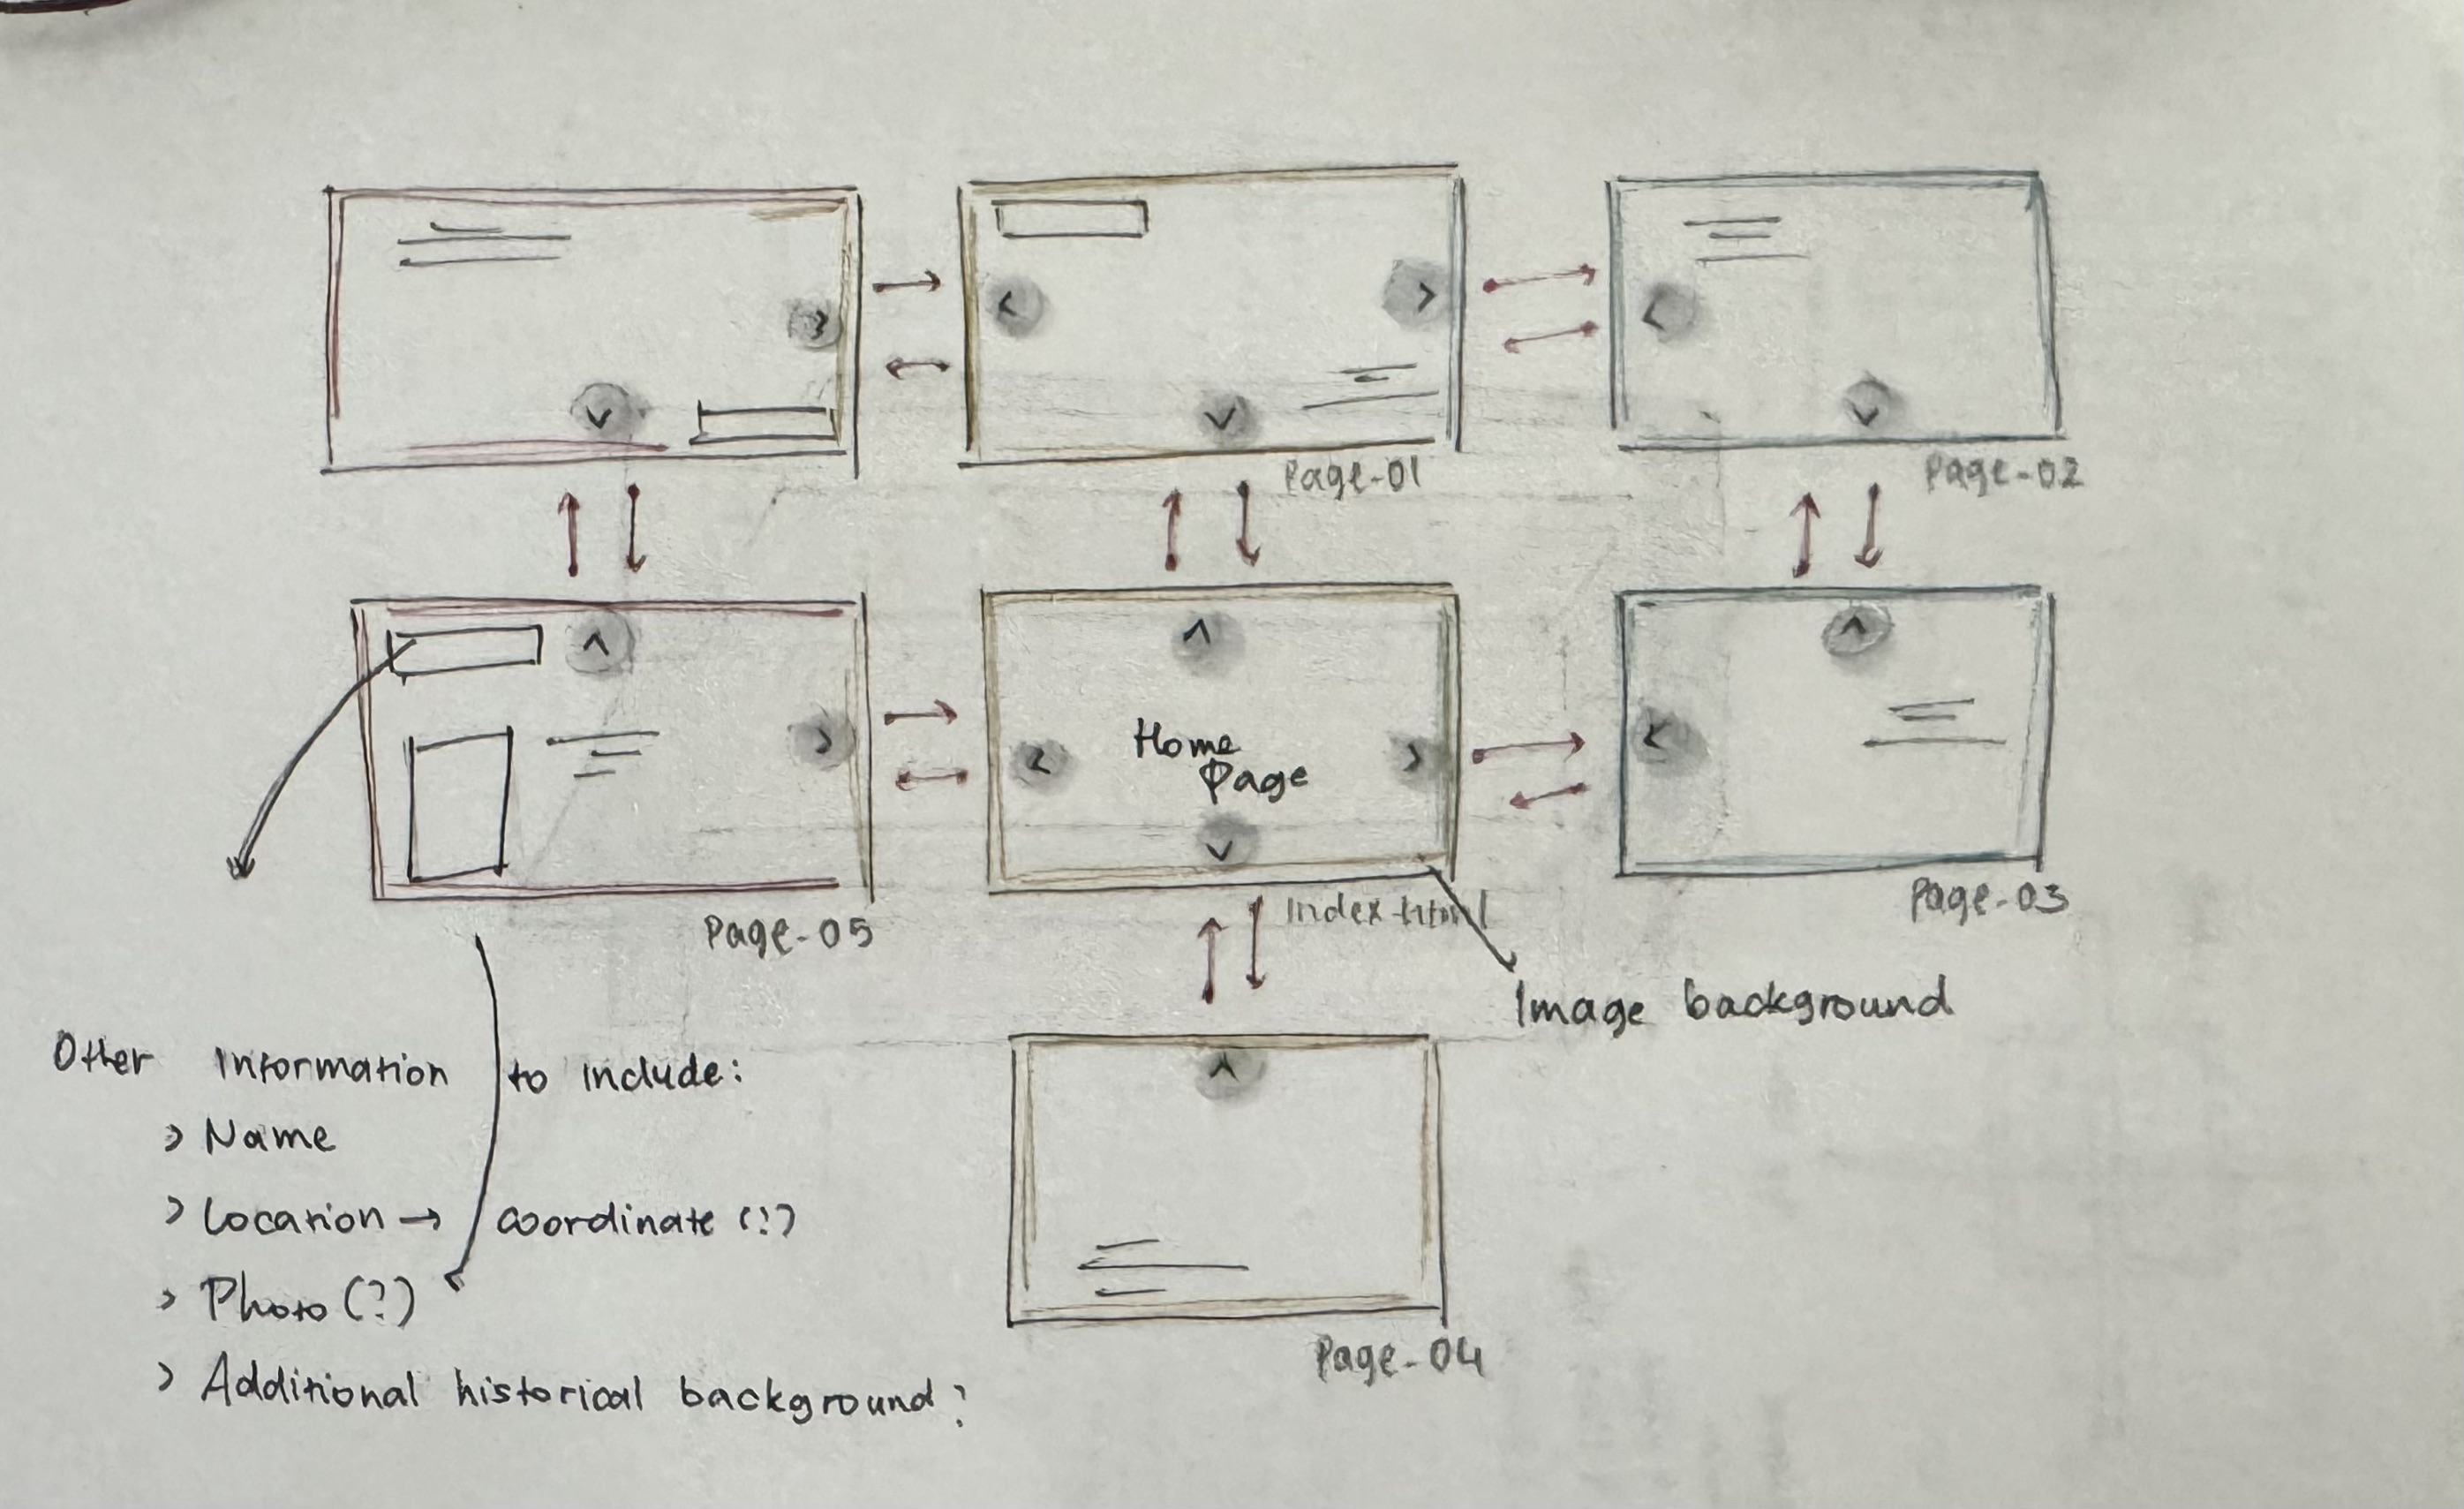 Page-01
Page-02
Home
Page
Page-05
Index.html
Page-03
Image background
Other Information to include:
> Name
> Location → coordinate (?)
> Photo (?)
> Additional historical background?
Page-04